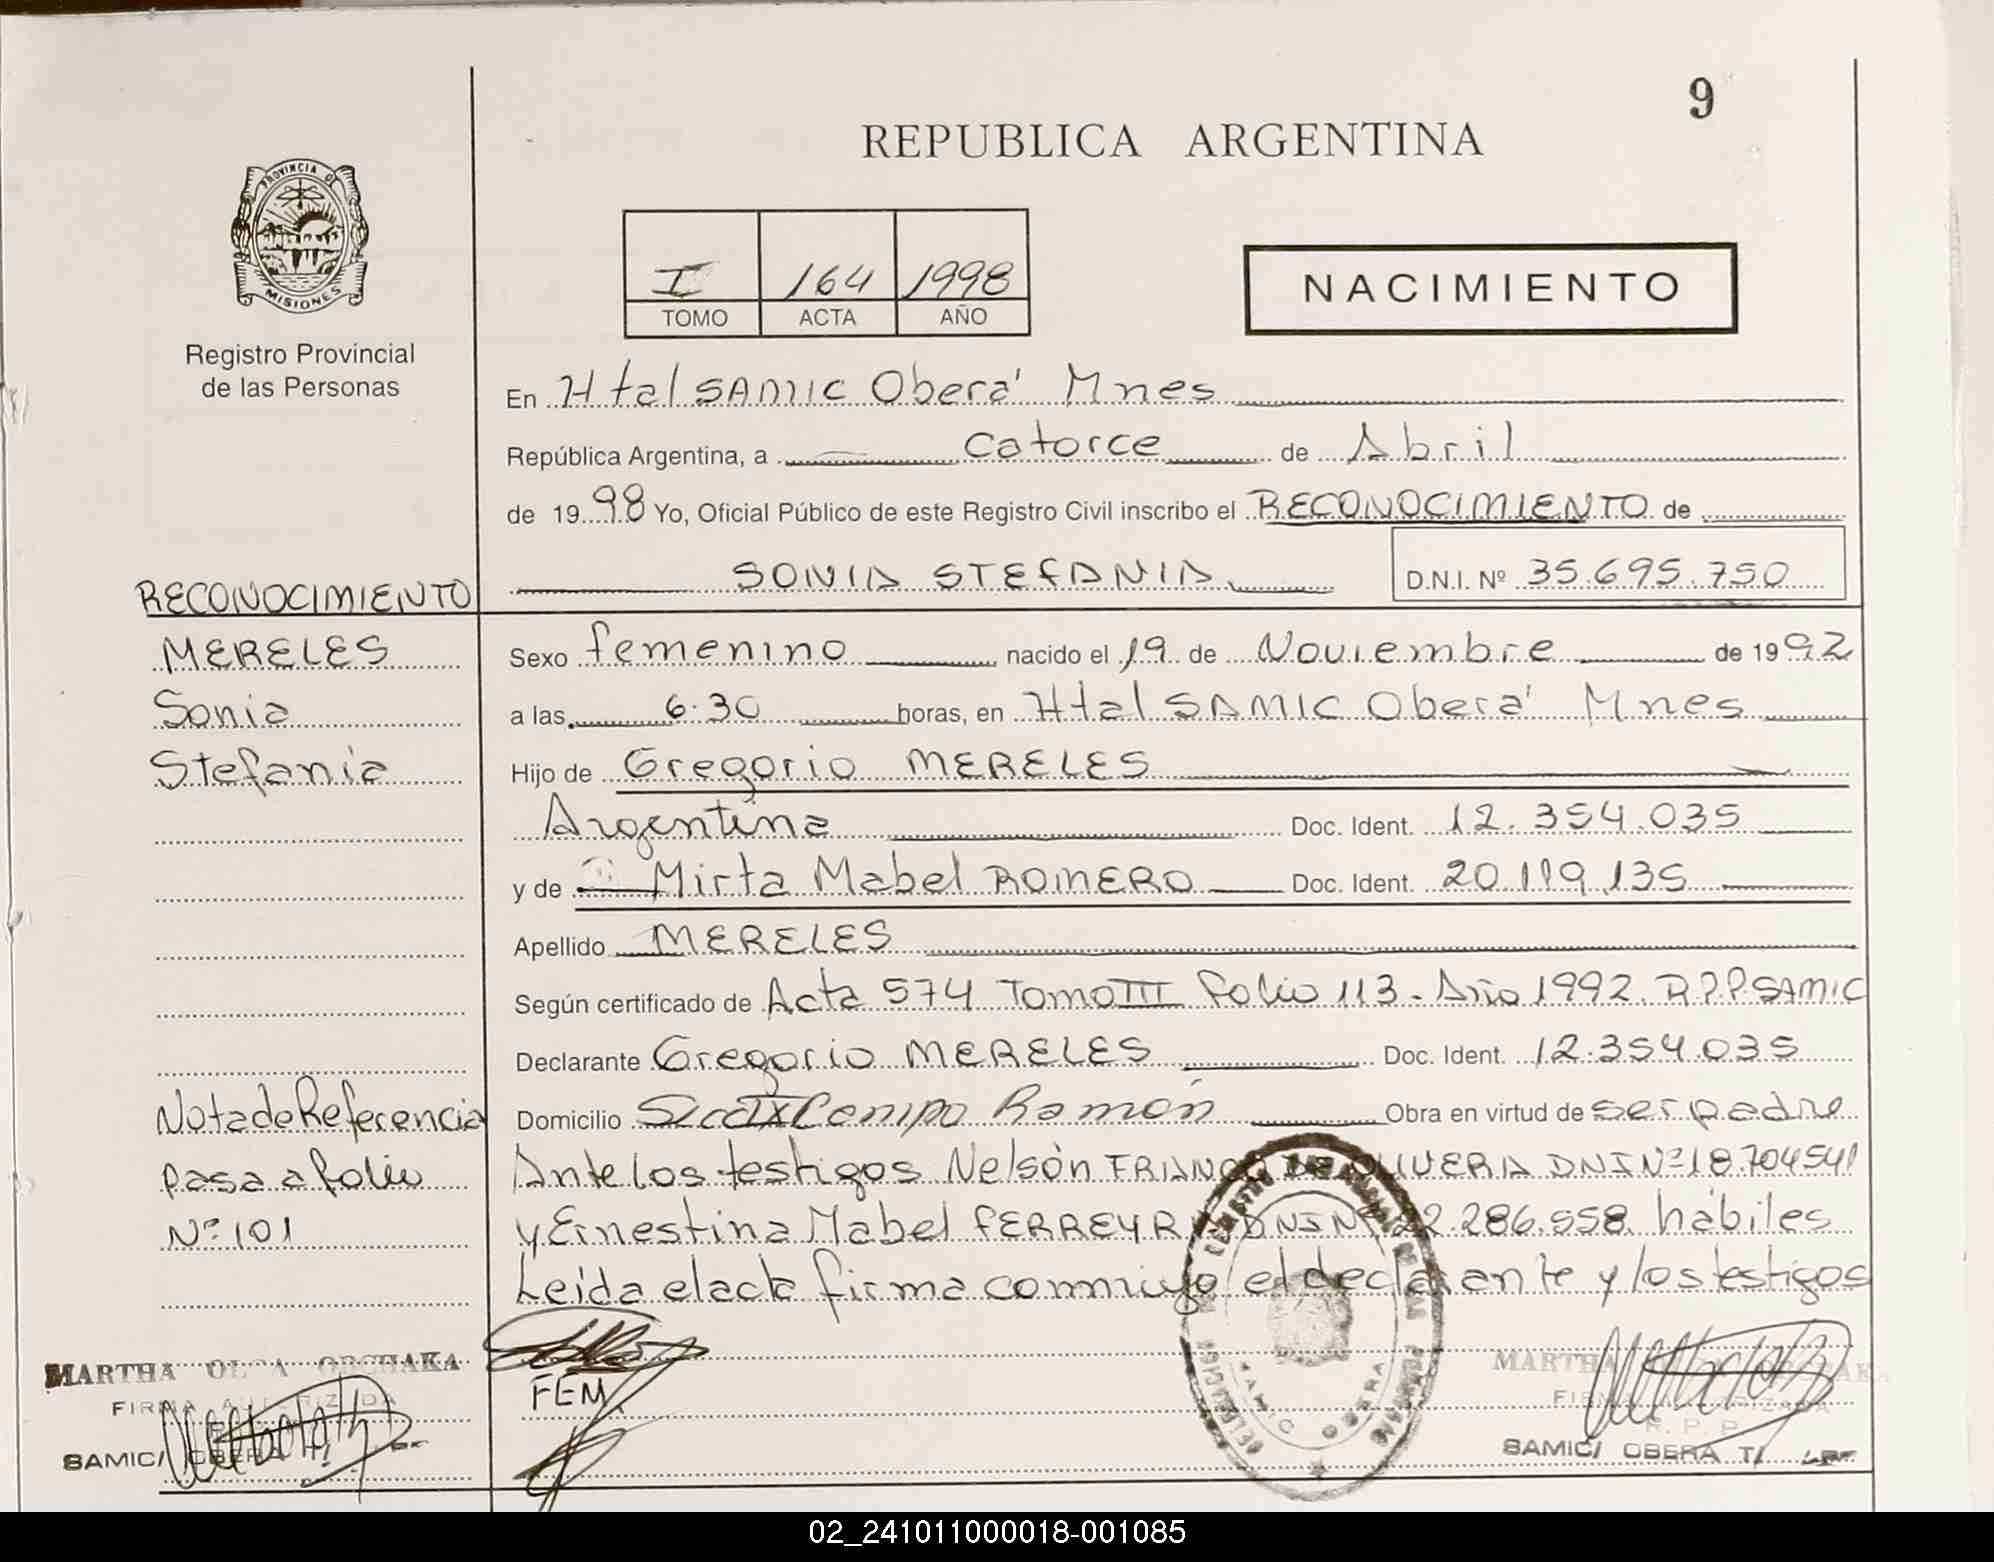 9
REPUBLICA ARGENTINA
PROVINCIA DE
MISIONES
Registro Provincial
de las Personas
I 164 1998
TOMO ACTA AÑO
NACIMIENTO
En Htal SAMIC Oberá Mnes
República Argentina, a catorce de Abril
de 1998 Yo, Oficial Público de este Registro Civil inscribo el RECONOCIMIENTO de
SONIA STEFANIA D.N.I. Nº 35.695.750
RECONOCIMIENTO
MERELES
Sonia
Stefania
Sexo femenino nacido el 19 de Noviembre de 1992
a las 6.30 horas, en Htal SAMIC Oberá Mnes
Hijo de Gregorio MERELES
Argentina Doc. Ident. 12.354.035
y de Mirta Mabel ROMERO Doc. Ident. 20.119.135
Apellido MERELES
Según certificado de Acta 574 Tomo III Folio 113 - Año 1992. R.P.P SAMIC
Declarante Gregorio MERELES Doc. Ident. 12.354.035
Domicilio Secc IX Campo Ramón Obra en virtud de ser padre
Nota de Referencia
Pasa a folio
Nº 101
Ante los testigos Nelsón FRANCO DE OLIVERA DNI Nº 18.704541
y Ernestina Mabel FERREYRA DNI Nº 22.286.558. hábiles
Leída el acta firma conmigo el declarante y los testigos
MARTHA OLGA
FIRMA AUTORIZADA
SAMIC/ OBERA
FEM
SAMIC OBERA
MARTHA
FIRMA AUTORIZADA
R. P. P.
SAMIC/ OBERA
02_241011000018-001085